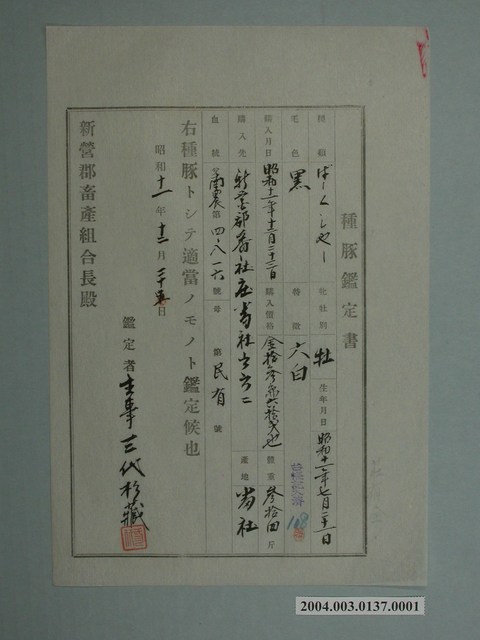 種豚鑑定書
種類 ばーくしやー 牝牡別 牡 生年月日 昭和十一年七月二十一日
毛色 黒 特徴 六白 118
購入月日 昭和十一年十二月二十二日 購入價格 體重 参拾四斤
購入先 新營郡番社庄番社 産地 番社
血統 父 第四八一六號 母 第 民有 號
右種豚トシテ適當ノモノト鑑定候也
昭和十一年十二月 日
鑑定者 主事 三代杉藏
新營郡畜產組合長殿
2004.003.0137.0001